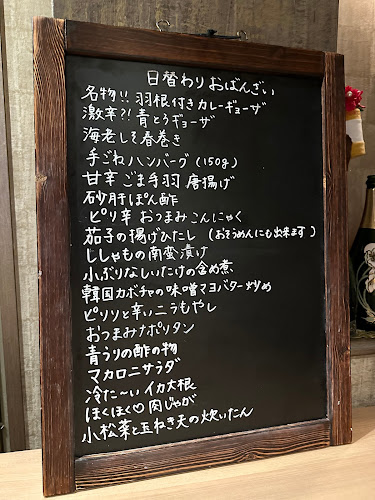 日替わり おばんざい
名物!! 羽根付きカレーギョーザ
激辛?! 青とうギョーザ
海老しそ春巻き
手ごねハンバーグ(150g)
甘辛ごま手羽唐揚げ
砂肝ぽん酢
ピリ辛おつまみこんにゃく
茄子の揚げひたし (おそうめんにも出来ます)
ししゃもの南蛮漬け
小ぶりなしいたけの含め煮
韓国カボチャの味噌マヨバター炒め
ピリリと辛いニラもやし
おつまみナポリタン
青うりの酢の物
マカロニサラダ
冷た〜いイカ大根
ほくほく♡肉じゃが
小松菜と玉ねぎ天の炊いたん